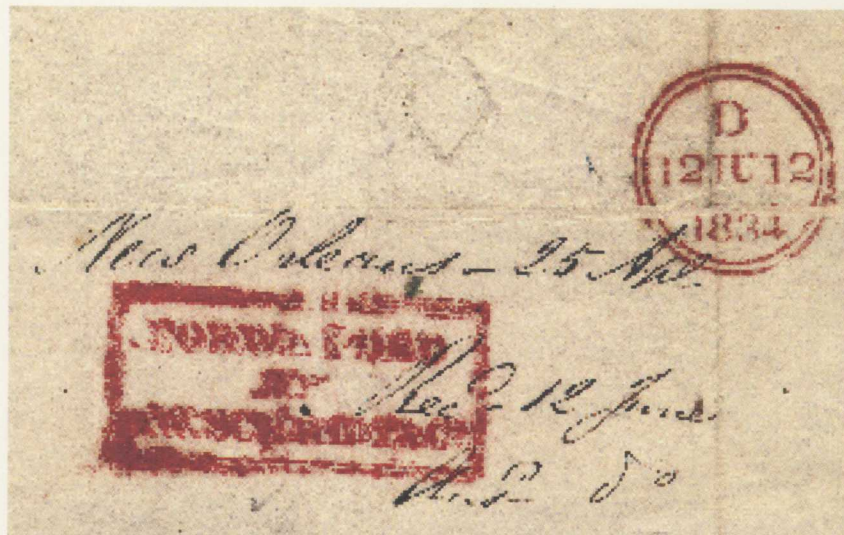 D
12JU12
1834
New Orleans - 25 Apl.
FORWARDED
BY
Recd 12 June
Ansd do